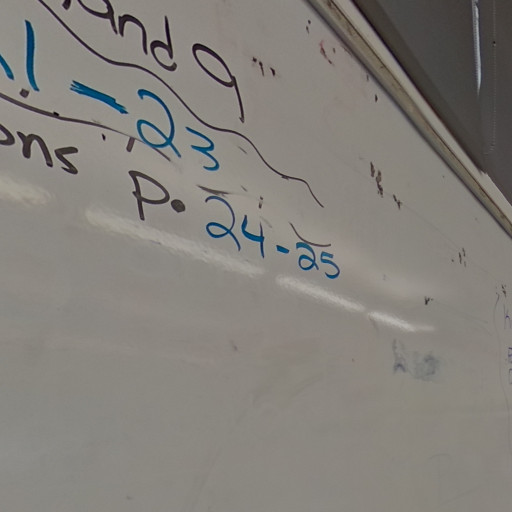 and 9
- 23
ons P. 24-25